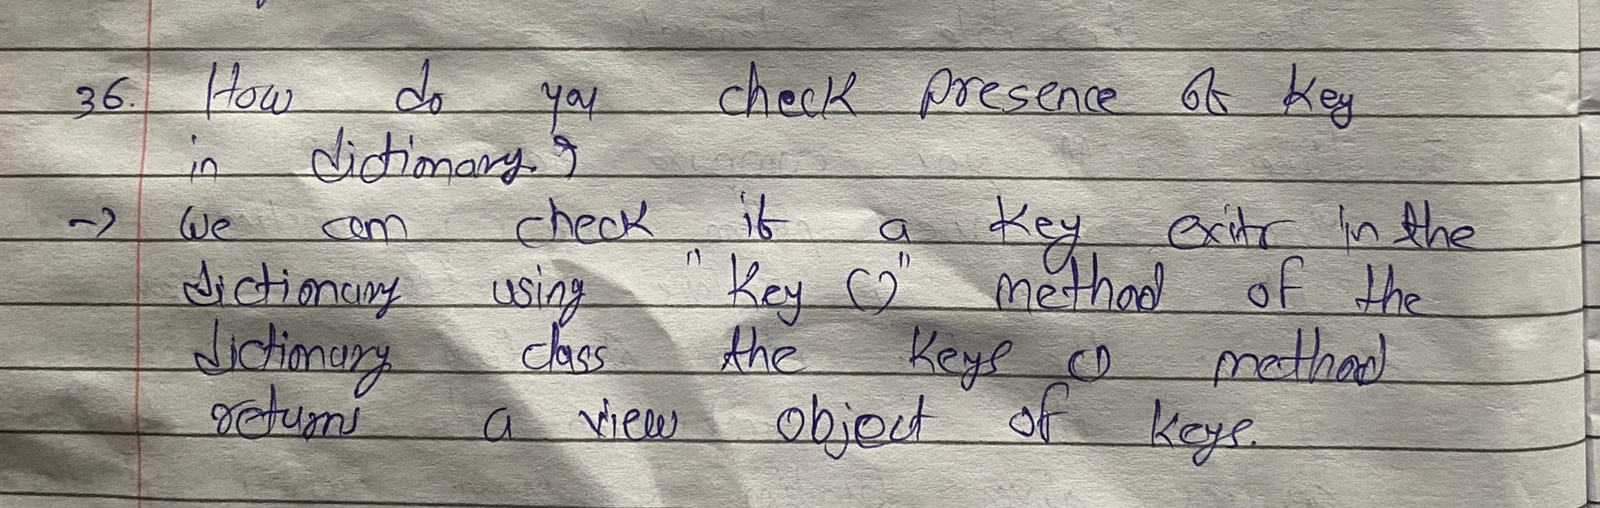 36. How do you check presence of key
in dictionary?
→ We can check if a key exits in the
dictionary using "key ()" method of the
dictionary class the keys () method
returns a view object of keys.